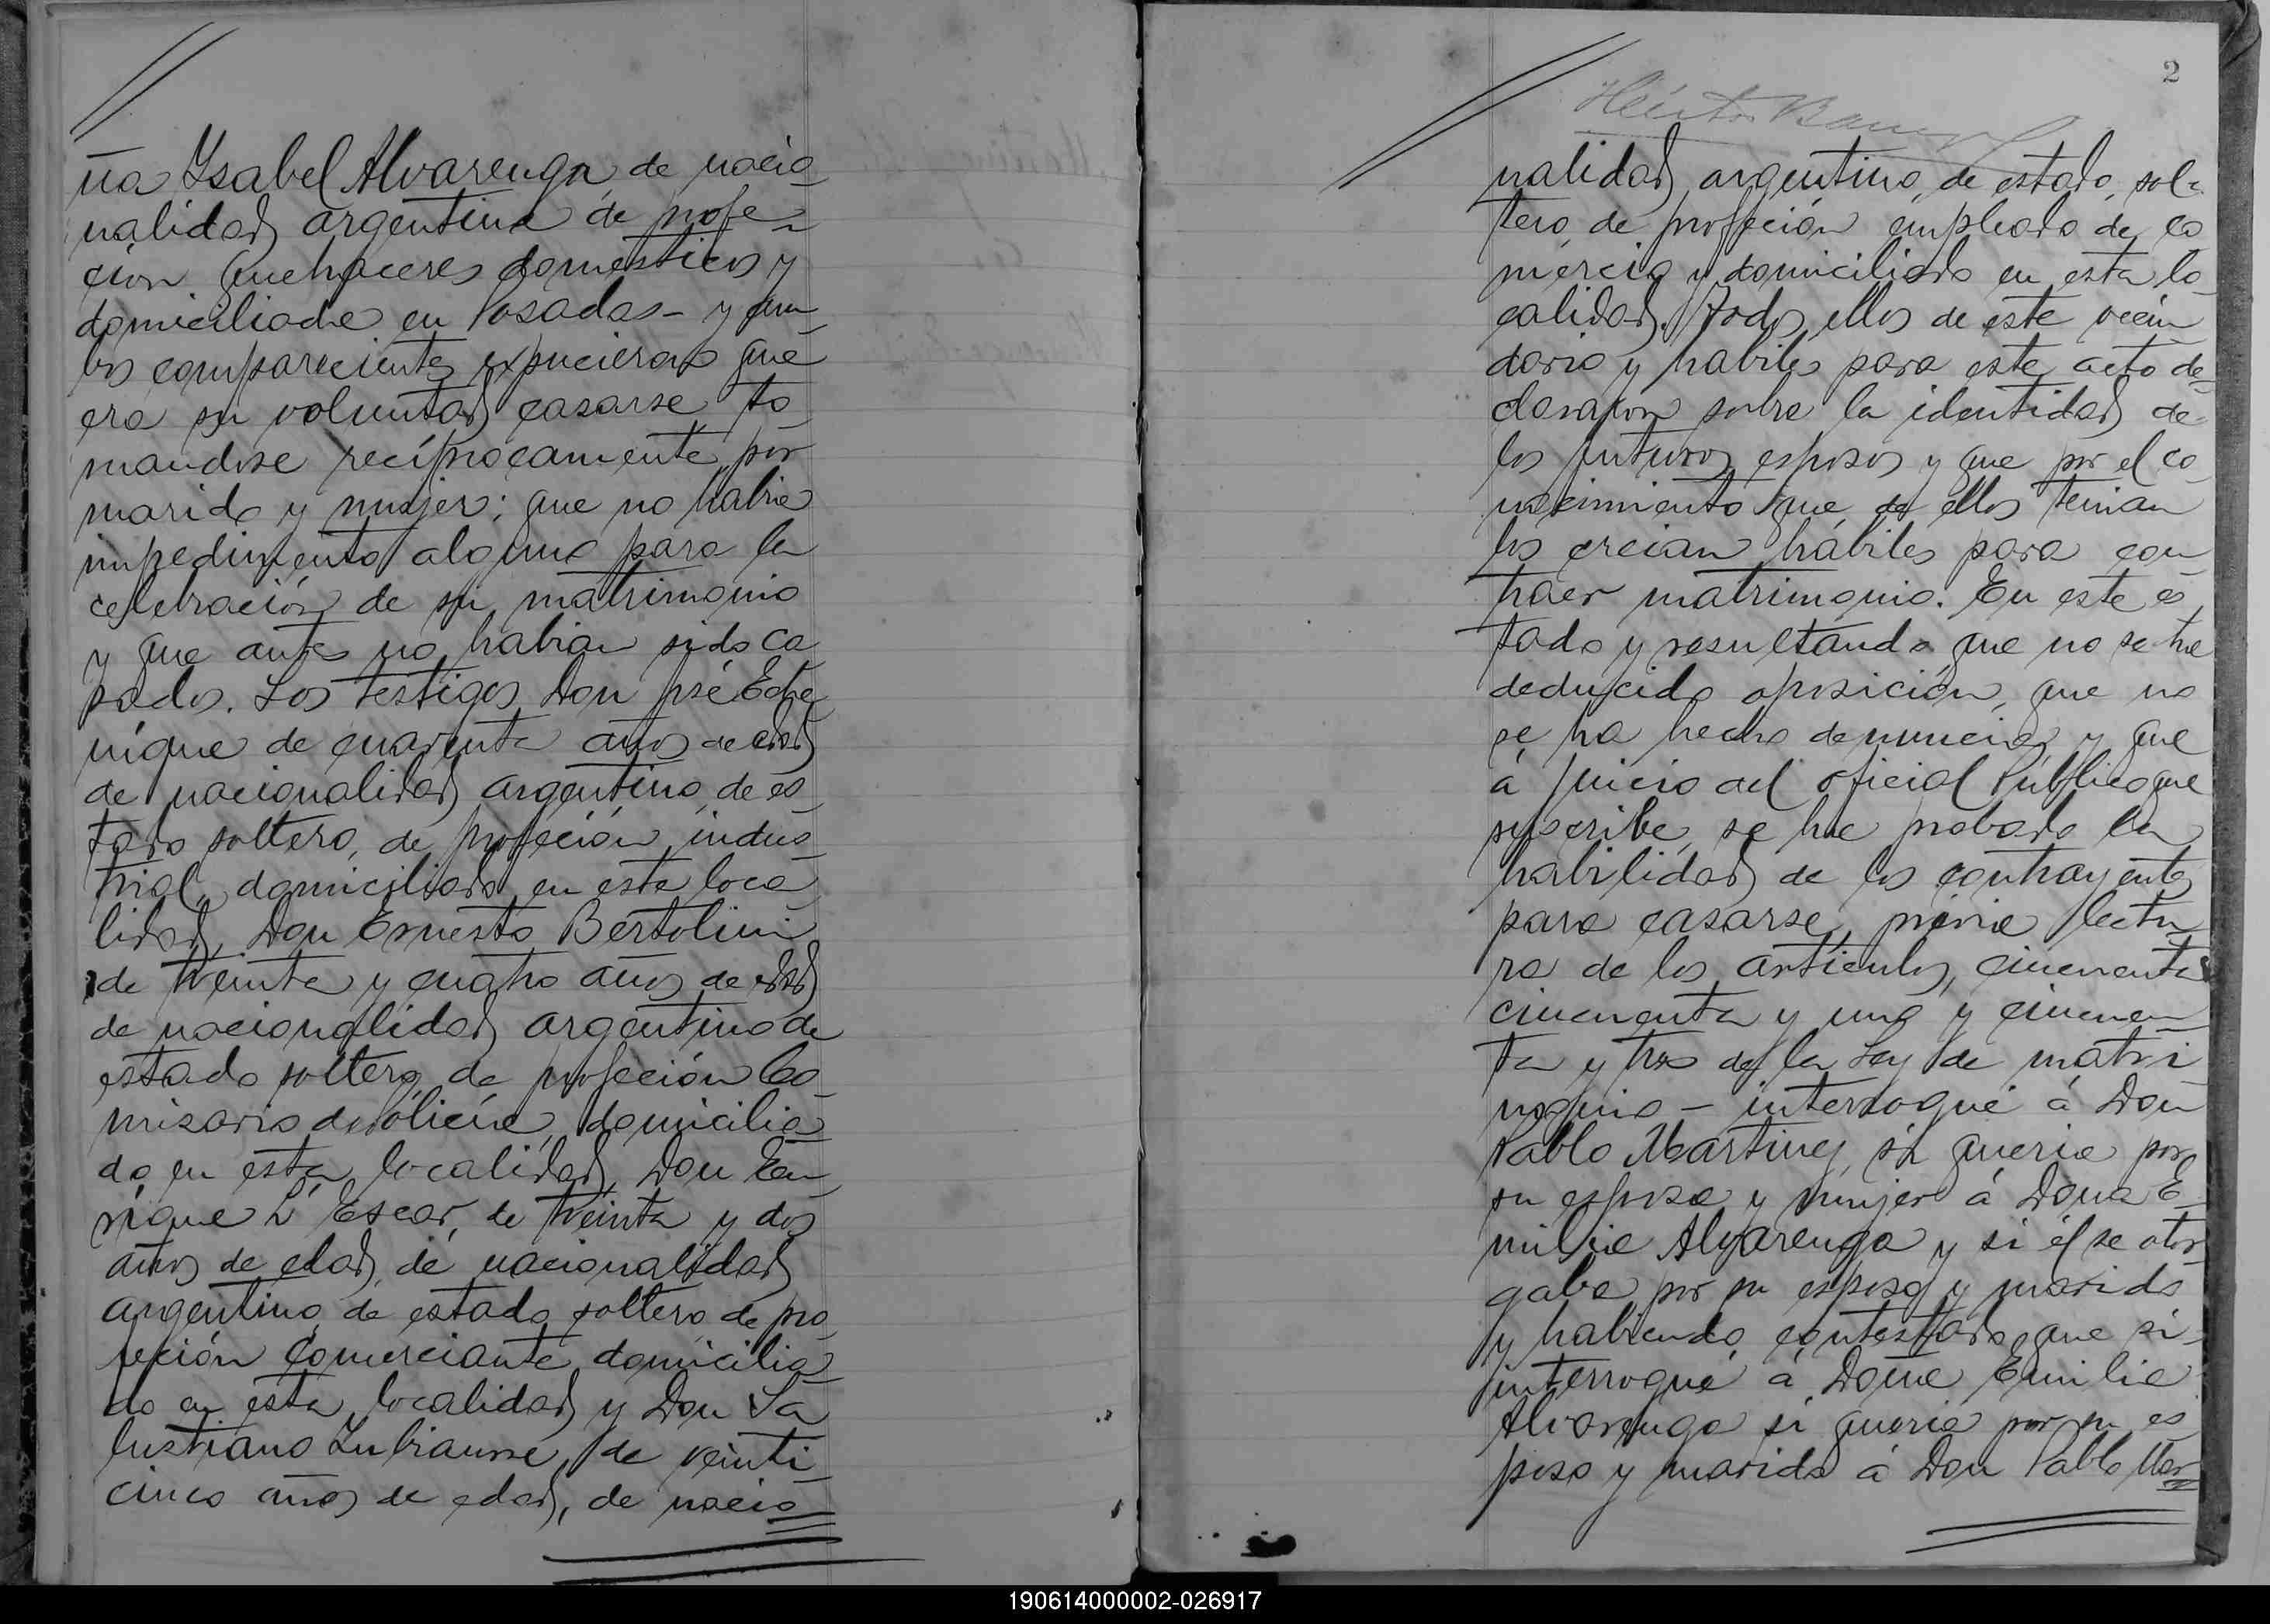 ña Ysabel Alvarenga, de nacio
nalidad argentina de profe-
ción quehaceres domesticos y
domiciliada en Posadas - y am
bos comparecientes expucieron que
era su voluntad casarse to
mandose recíprocamente por
marido y mujer; que no habia
impedimento alguno para la
celebración de su matrimonio
y que antes no habian sido ca
sados. Los testigos Don José Eche
nique de cuarenta años de edad
de nacionalidad argentino, de es
tado soltero, de profeción indus
trial, domiciliado en esta loca
lidad, Don Ernesto Bertolini
de treinta y cuatro años de edad
de nacionalidad argentino de
estado soltero, de profeción Co
misario de Policia, domicilia
do en esta localidad, Don En
rique L' Escar, de treinta y dos
años de edad, de nacionalidad
argentino, de estado soltero, de pro
feción comerciante, domicilia
do en esta localidad y Don Sa
lustiano de veinti
cinco años de edad, de nacio
2
Héctor
nalidad argentino, de estado sol-
tero, de profeción empleado de co
mercio y domiciliado en esta lo
calidad. Todos ellos de este vecin
dario y habiles para este acto de
clararon sobre la identidad de
los futuros esposos y que por el co
nocimiento que de ellos tenian
los creian hábiles para con
traer matrimonio. En este es
tado y resultando que no se ha
deducido oposición, que no
se ha hecho denuncia y que
á juicio del oficial Público que
suscribe, se ha probado la
habilidad de los contrayentes
para casarse, previa lectu
ra de los artículos, cincuenta
cincuenta y uno y cincuen
ta y tres de la Ley de matri
monio - interrogué á Don
Pablo Martinez, si queria por
su esposa y mujer á Doña E
milia Alvarenga y si él se otor
gaba por su esposo y marido
y habiendo contestado que si
interrogué á Doña Emilia
Alvarenga si queria por su es
poso y marido á Don Pablo Mar
190614000002-026917